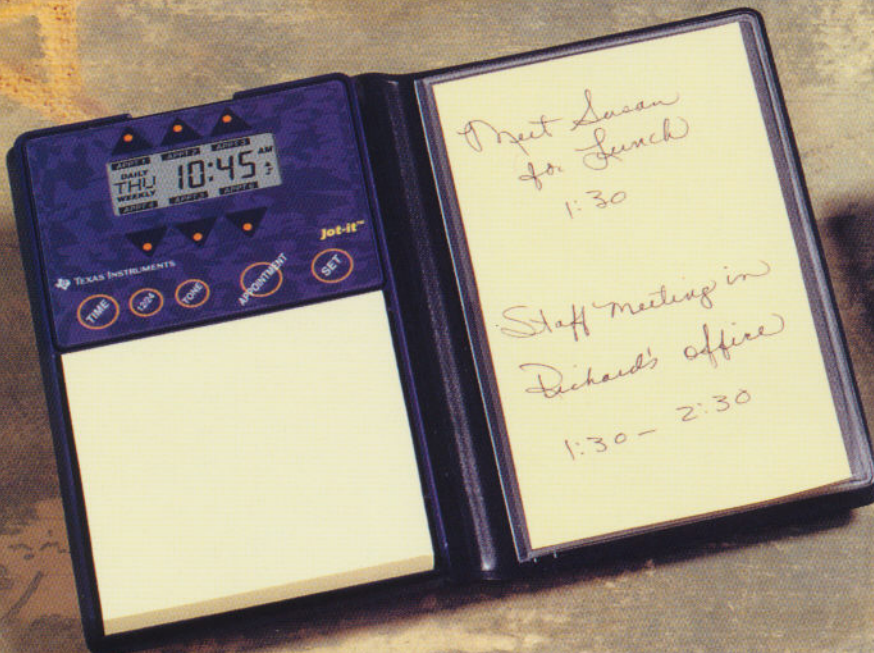 APPT 1 APPT 2 APPT 3
DAILY
THU 10:45 AM
WEEKLY
APPT 4 APPT 5 APPT 6
Jot-it™
TEXAS INSTRUMENTS
TIME 12/24 TONE APPOINTMENT SET
Meet Susan
for Lunch
1:30
Staff meeting in
Richard's office
1:30 - 2:30